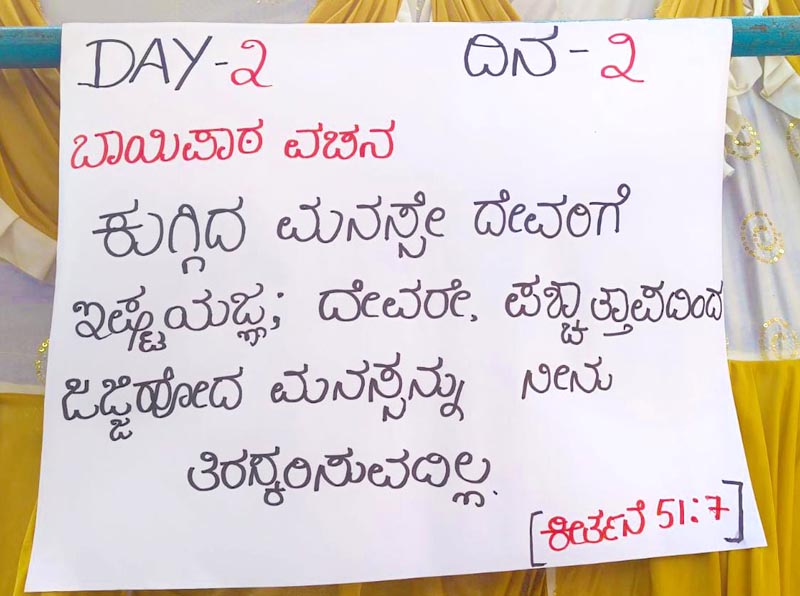 DAY-೨ ದಿನ-೨
ಬಾಯಿಪಾಠ ವಚನ
ಕುಗ್ಗಿದ ಮನಸ್ಸೇ ದೇವರಿಗೆ
ಇಷ್ಟಯಜ್ಞ; ದೇವರೇ, ಪಶ್ಚಾತ್ತಾಪದಿಂದ
ಜಜ್ಜಿಹೋದ ಮನಸ್ಸನ್ನು ನೀನು
ತಿರಸ್ಕರಿಸುವದಿಲ್ಲ.
[ಕೀರ್ತನೆ 51:7]